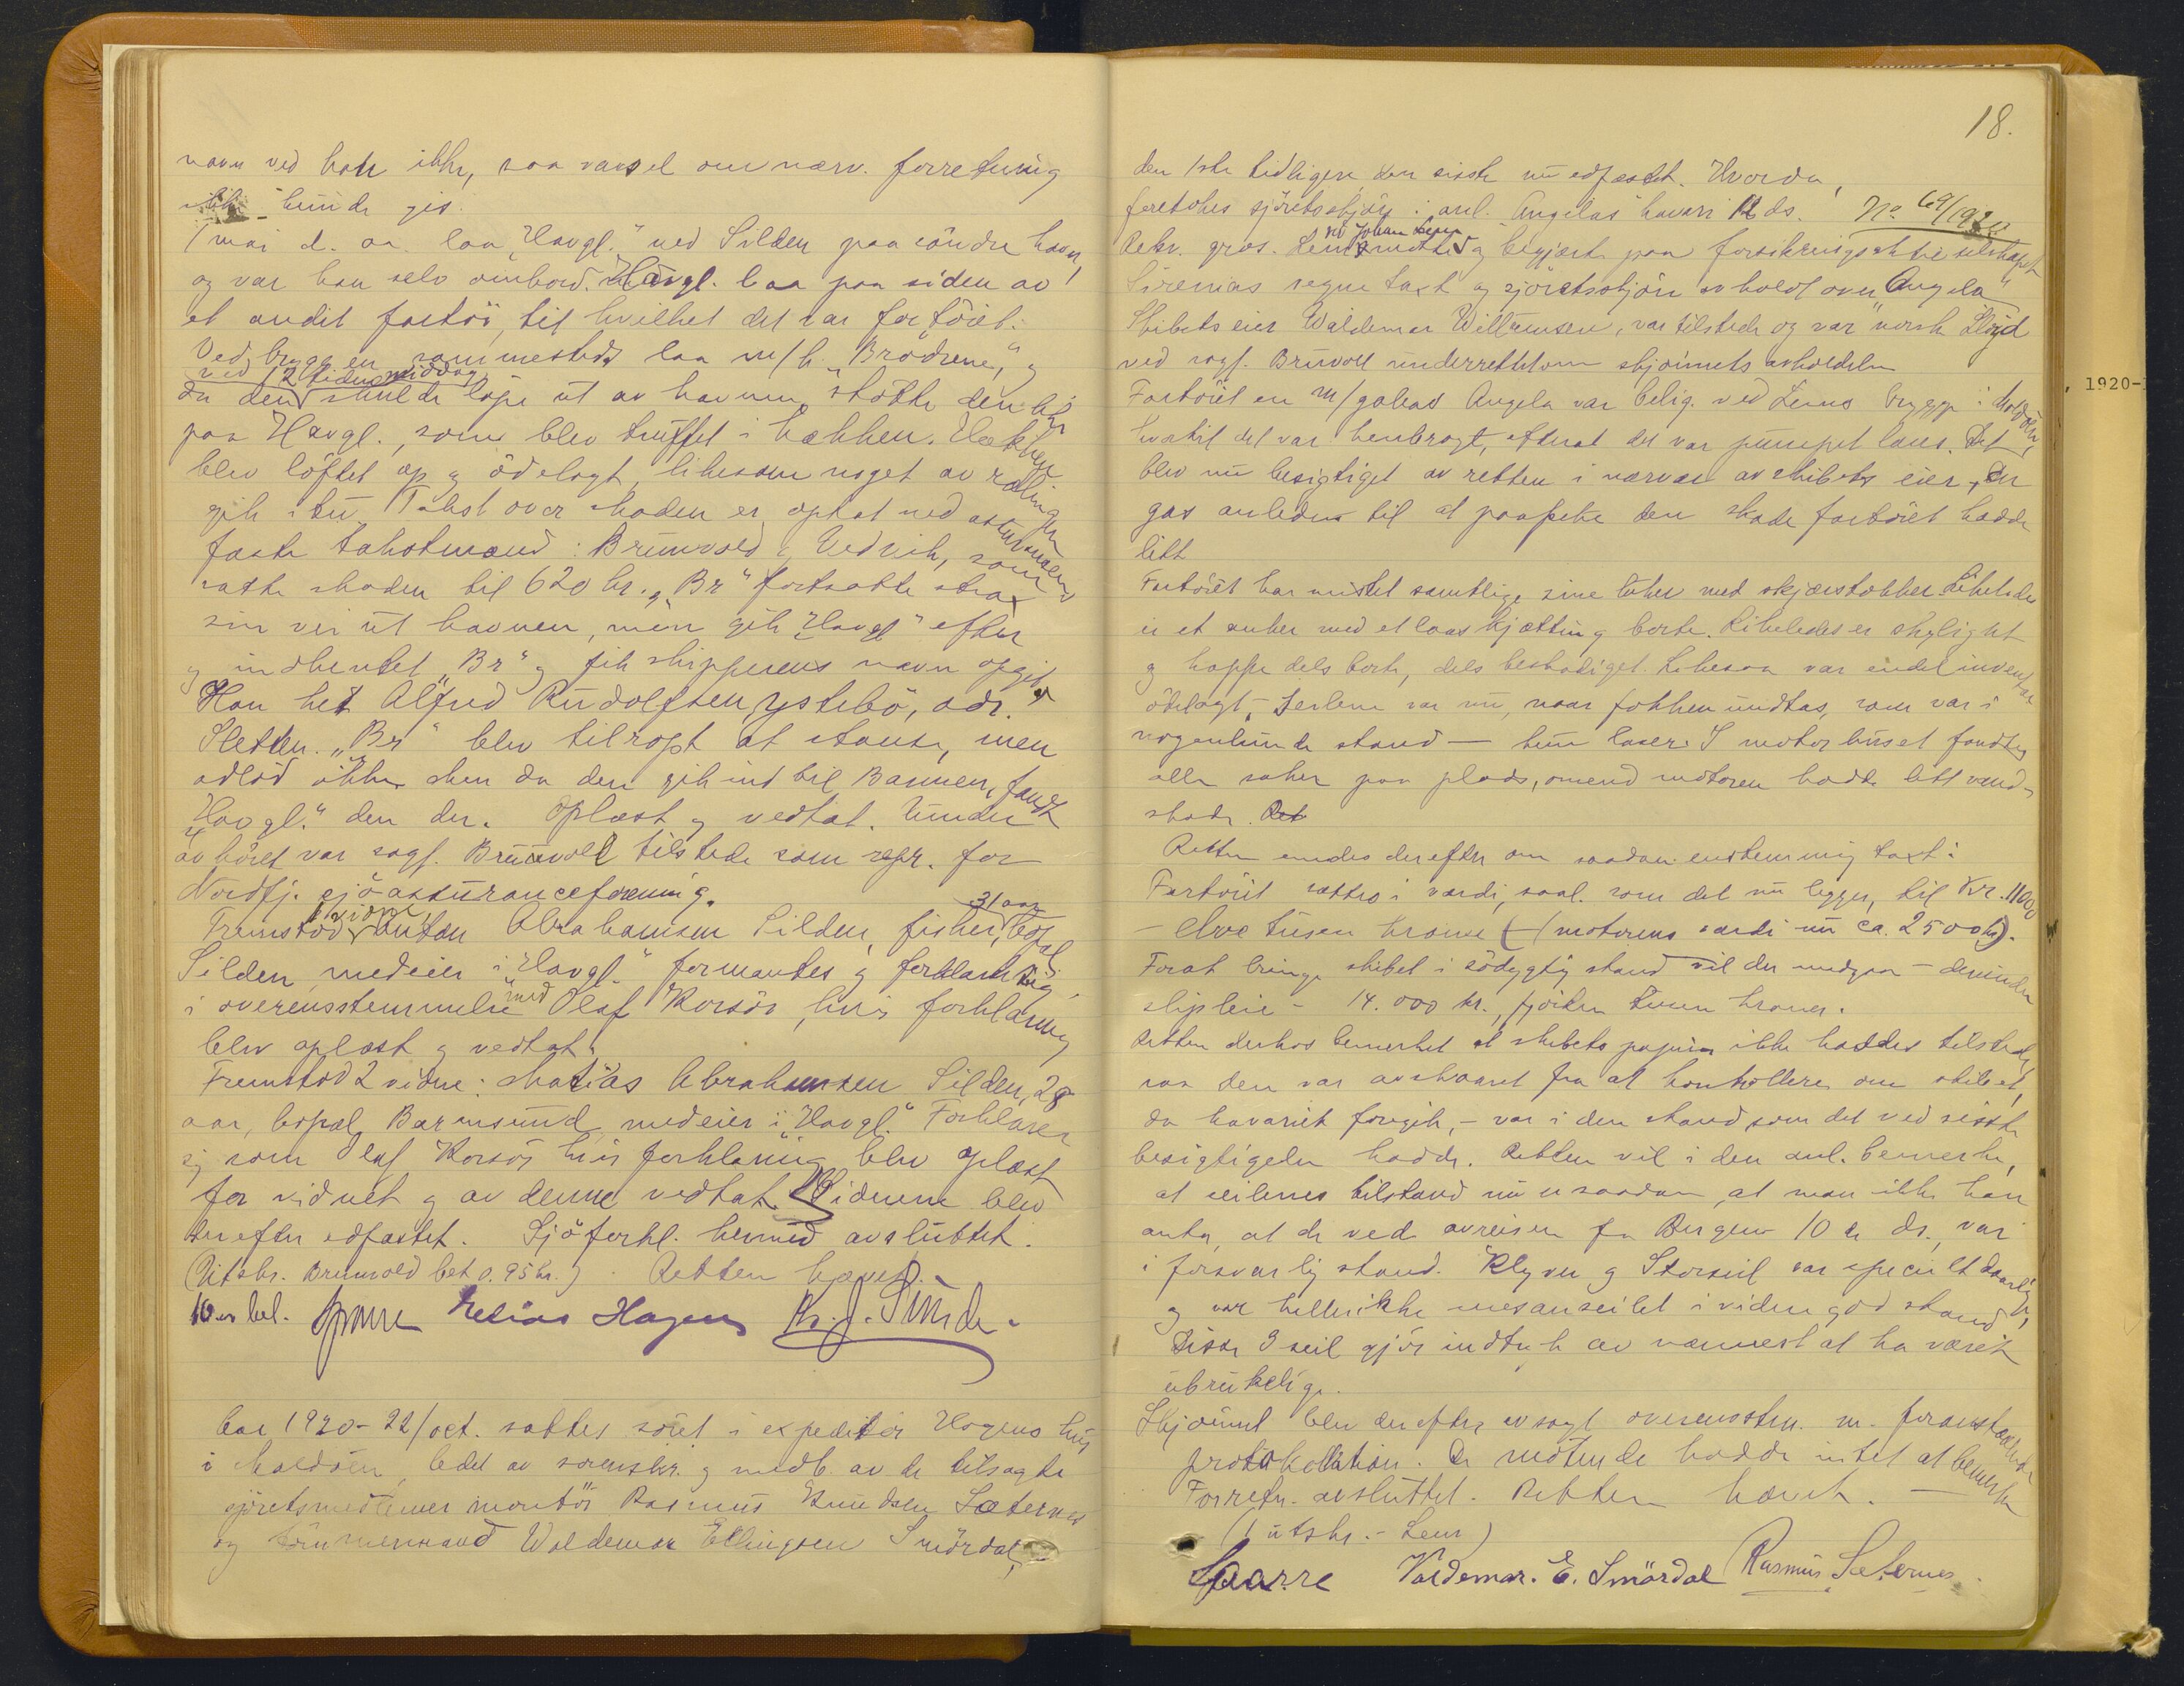 navn ved han ikke, saa varsel om nærv. forretning
ikke kunde gis.
I mai d. aa. laa "Havgl." ved Silden paa söndre havn,
og var han selv ombord. Havgl. laa paa siden av
et andet fartöi, til hvilket det var fortöiet.
Ved bryggen sammesteds laa m/k "Brödrene," og
ved 12 tiden middag
da den skulde löpe ut av havnen, stötte den bort
paa Havgl., som blev truffet i hækken. Hækken
blev löftet op og ödelagt, likesom noget av rælingen
gik itu. Takst over skaden er optat ved assurancens
faste takstmænd: Brunvold & Vedvik, som
satte skaden til 620 kr. "Br" fortsatte strax
sin vei ut havnen, men gik "Havgl" efter
og indhentet "Br" og fik skipperens navn opgit.
Han het Alfred Rudolfsen Ystebö, adr.
Sletten. "Br" blev tilropt at stanse, men
adlöd ikke. Men da den gik ind til Bannen, fandt
"Havgl." den der. Oplæst og vedtat. Under
avhöret var sagf. Brunvoll tilstede som repr. for
Nordfj. sjöassuranceforening.
Fremstod 1 vidne, Anton Abrahamsen Silden, fisker, 31 aar, bopæl
Silden, medeier i "Havgl." formantes og forklarte sig
i overensstemmelse med Olaf Korsös, hvis forklaring
blev oplæst og vedtat.
Fremstod 2 vidne: Matias Abrahamsen Silden, 28
aar, bopæl Barmsund, medeier i "Havgl." Forklarer
sig som Olaf Korsös hvis forklaring blev oplæst
for vidnet og av denne vedtat. Vidnene blev
derefter edfæstet. Sjöforkl. hermed avsluttet.
(Utskr. Brunvold bet 0.95 kr.) . Retten hævet.
10 er bel. Sparre Helias Hagen Kr. J. Sunde.
Aar 1920 - 22/oct. sattes söret i expeditör Hagens hus
i Maldöen, ledet av sorenskr. og medb. av de tilsagte
sjöretsmedlemer montör Rasmus Knudsen Sæternes
og tömmermand Waldemar Ellingsen Smördal,
18.
den 1ste tidligere den siste nu edfæstet. Hvorda,
foretokes sjöretsskjön i anl. "Angelas" havari 12 ds. No 69/1920
Rekv. gros. Lem v/ Johan Lem mötte og begjærte paa forsikringsaktieselskapet
Sirenias vegne taxt og sjöretsskjön avholdt over "Angela"
Skibets eier Waldemar Willumsen, var tilstede og var norsk Lloyd
ved sagf. Brunvoll underrettet om skjönnets avholdelse
Fartöiet en m/galeas Angela var belig. ved Lems brygge i Maldöen,
hvortil det var henbragt, efterat det var pumpet læns. Det
blev nu besigtiget av retten i nærvær av skibets eier, der
gav anledn til at paapeke den skade fartöiet hadde
lidt
Fartöiet har mistet samtlige sine luker med skjærstokker. Likeledes
er et anker med et laas kjætting borte. Likeledes er skylight
og kappe dels bort, dels beskadiget. Likesaa var endel inventar
ödelagt. Seilene var nu, naar fokken undtas, som var i
nogenlunde stand - kun laser. I motorhuset fandtes
alle saker paa plads, omend motoren hadde lidt vand-
skade. Ret
Retten enedes derefter om saadan enstemmig taxt:
Fartöiet sættes i værdi, saal. som det nu ligger, til Kr. 11000
- elve tusen kroner (motorens værdi nu ca. 2500 kr).
Forat bringe skibet i södygtig stand vil der medgaa - derunder
slipleie - 14.000 kr., fjorten tusen kroner.
Retten derhos bemerket at skibets papirer ikke haddes tilstede,
saa den var avskaaret fra at kontrollere om skibet,
da havariet foregik, - var i den stand som det ved siste
besigtigelse hadde. Retten vil i den anl. bemerke,
at seilenes tilstand nu er saadan, at man ikke kan
anta, at de ved avreisen fra Bergen 10 ds., var
i forsvarlig stand. Klyver og Storseil var specielt daarlige,
og var hellerikke mesanseilet i videre god stand
Disse 3 seil gjör indtryk av nærmest at ha været
ubrukelige.
Skjönnet blev derefter avsagt overensstem. m. foranstaaende
protokollation. De mötende hadde intet at bemerke
Forretn. avsluttet. Retten hævet. -
(1 utskr. - Lem)
Sparre Valdemar. E. Smördal Rasmus Sæternes
1920-1